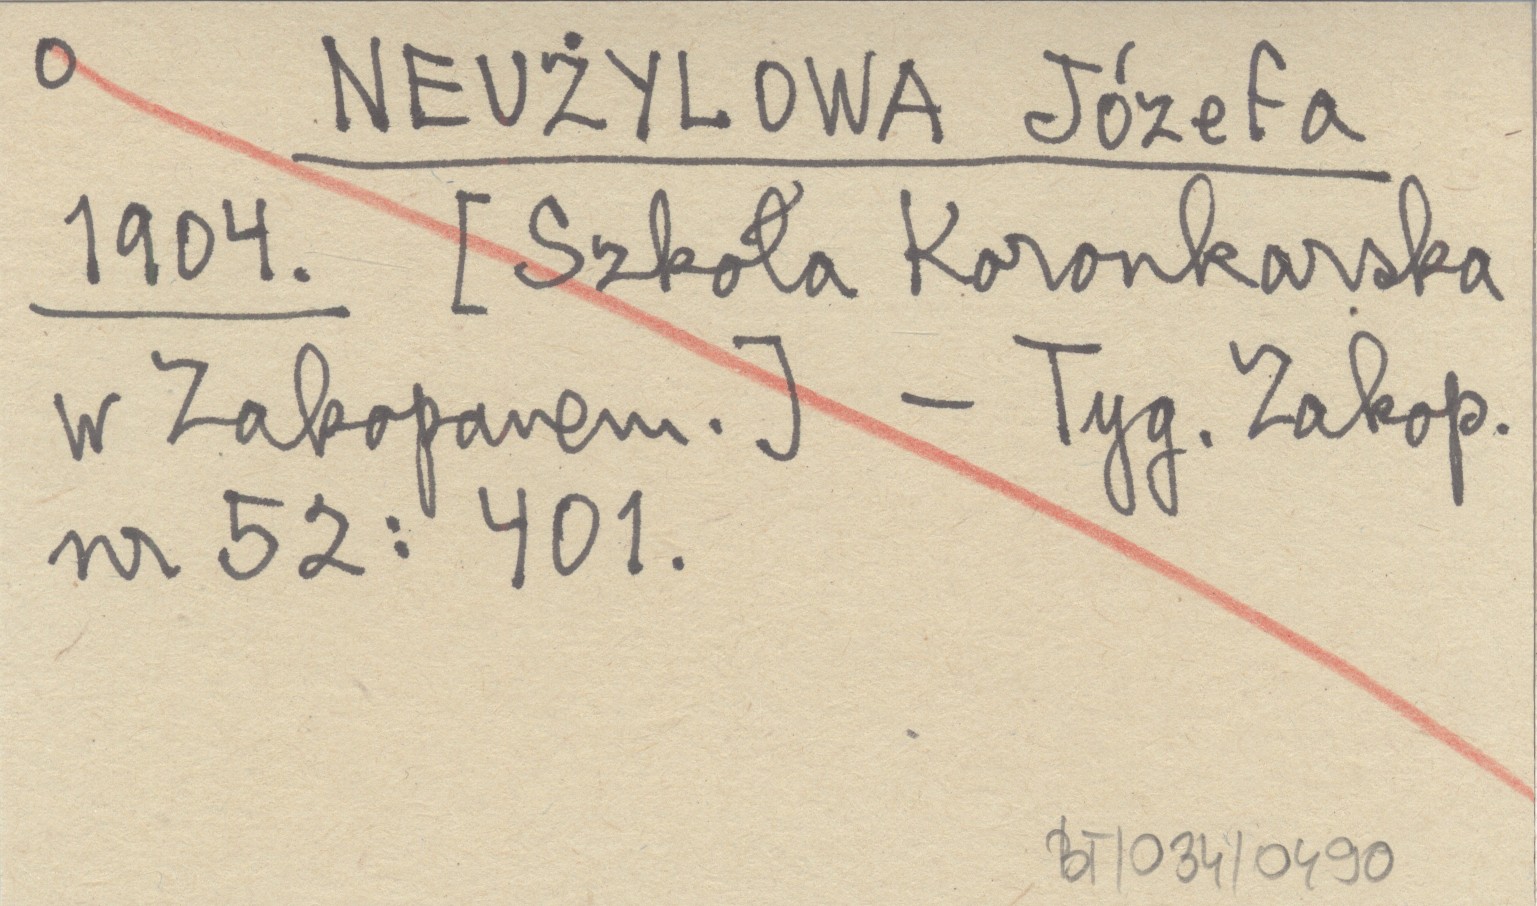 O NEUŻYLOWA Józefa
1904. [Szkoła Koronkarska
w Zakopanem.] – Tyg. Zakop.
nr 52: 401.
BT/034/0490